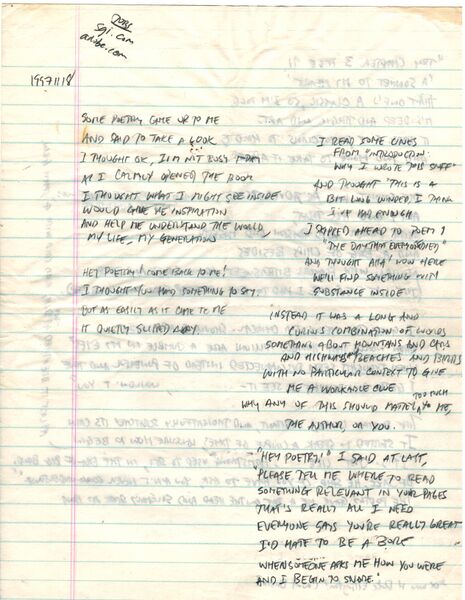 JOBS
sgi.com
adobe.com
19971118
SOME POETRY CAME UP TO ME
AND SAID TO TAKE A LOOK
I THOUGHT OK, I'M NOT BUSY TODAY
AS I CALMLY OPENED THE BOOK
I THOUGHT WHAT I MIGHT SEE INSIDE
WOULD GIVE ME INSPIRATION
AND HELP ME UNDERSTAND THE WORLD,
MY LIFE, MY GENERATION
I READ SOME LINES
FROM "INTRODUCTION:
WHY I WROTE THIS STUFF"
AND THOUGHT "THIS IS A
BIT LONG WINDED, I THINK
I'VE HAD ENOUGH
I SKIPPED AHEAD TO POEM 1
"THE DAY THAT EVERYONE
AND THOUGHT AHA! NOW HERE
WE'LL FIND SOMETHING WITH
SUBSTANCE INSIDE
INSTEAD IT WAS A LONG AND
CURIOUS COMBINATION OF WORDS
SOMETHING ABOUT MOUNTAINS AND CARS
AND HIGHWAYS BEACHES AND BIRDS
WITH NO PARTICULAR CONTEXT TO GIVE
ME A WORKABLE CLUE
WHY ANY OF THIS SHOULD MATTER TOO MUCH TO ME,
THE AUTHOR OR YOU.
HEY POETRY! COME BACK TO ME!
I THOUGHT YOU HAD SOMETHING TO SAY.
BUT AS EASILY AS IT CAME TO ME
IT QUIETLY SLIPPED AWAY.
"HEY POETRY!" I SAID AT LAST,
"PLEASE TELL ME WHERE TO READ
SOMETHING RELEVANT IN YOUR PAGES
THAT'S REALLY ALL I NEED
EVERYONE SAYS YOU'RE REALLY GREAT
I'D HATE TO BE A BORE
WHEN SOMEONE ASKS ME HOW YOU WERE
AND I BEGIN TO SNORE."